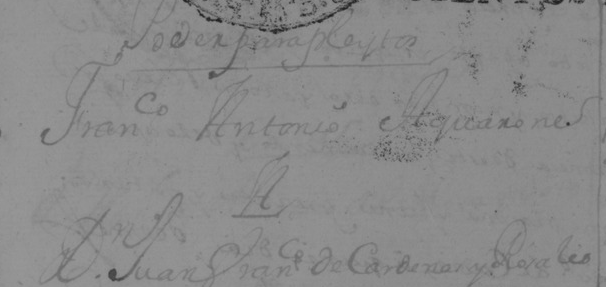 Poder para pleytos
Fran.co Antonio Aquarones
A
D.n Juan Fran.co de Cardenas y Rosales